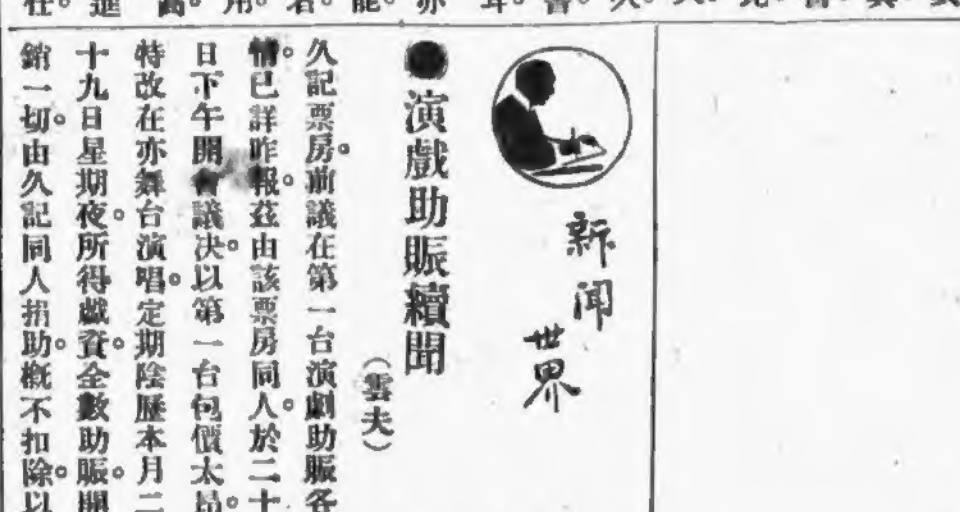 新闻世界
●演戲助賑續聞
（雲夫）
久記票房。前議在第一台演劇助賑各
情。已詳昨報。茲由該票房同人。於二十
日下午開會議決。以第一台包價太昂。
特改在亦舞台演唱。定期陰歷本月二
十九日星期夜。所得戲資。全數助賑。開
銷一切。由久記同人捐助。概不扣除。以